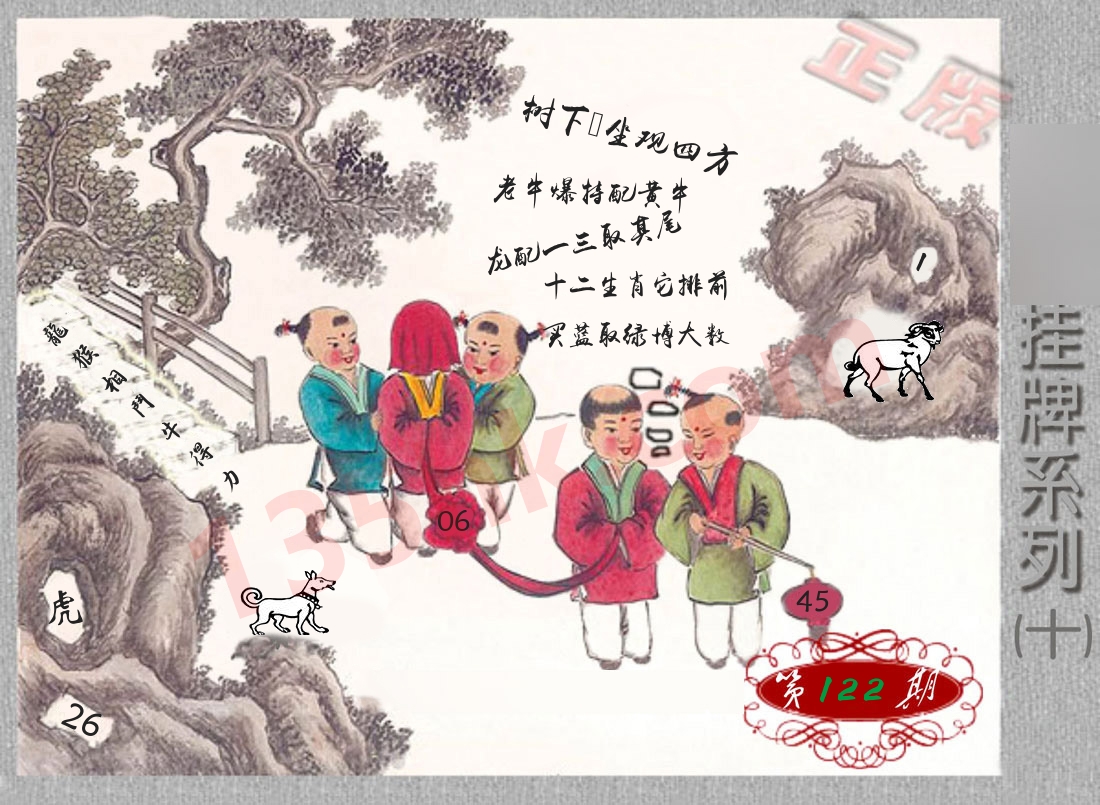 正版
树下▯坐观四方
老牛爆特配黄牛
龙配一三取其尾
十二生肖它排前
买蓝取绿博大数
龍猴相鬥牛得力
1
06
45
虎
26
第122期
挂牌系列(十)